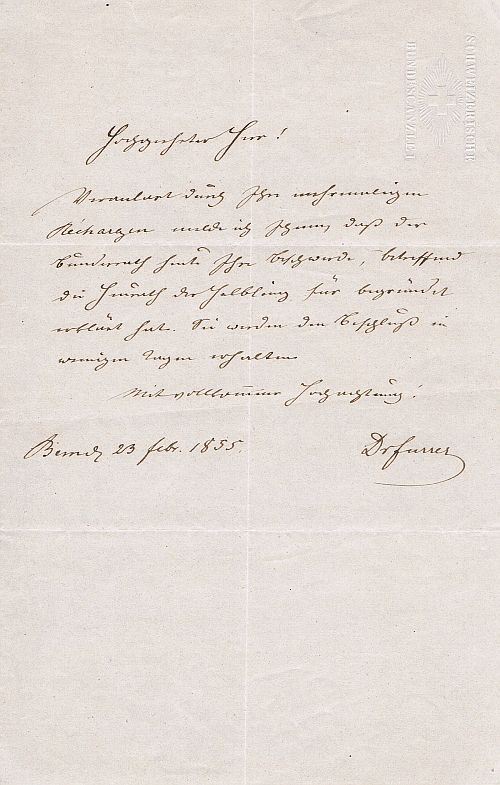 SCHWEIZERISCHE
BUNDESCANZLEI
Hochgeehrter Herr!
Veranlaßt durch Ihre mehrmaligen
Rechargen melde ich Ihnen, daß der
Bundesrath heute Ihre Beschwerde, betreffend
die Heirath der Helbling für begründet
erklärt hat. Sie werden den Beschluß in
wenigen Tagen erhalten
Mit vollkommner Hochachtung!
Bern d 23 febr. 1855.
Dr Furrer